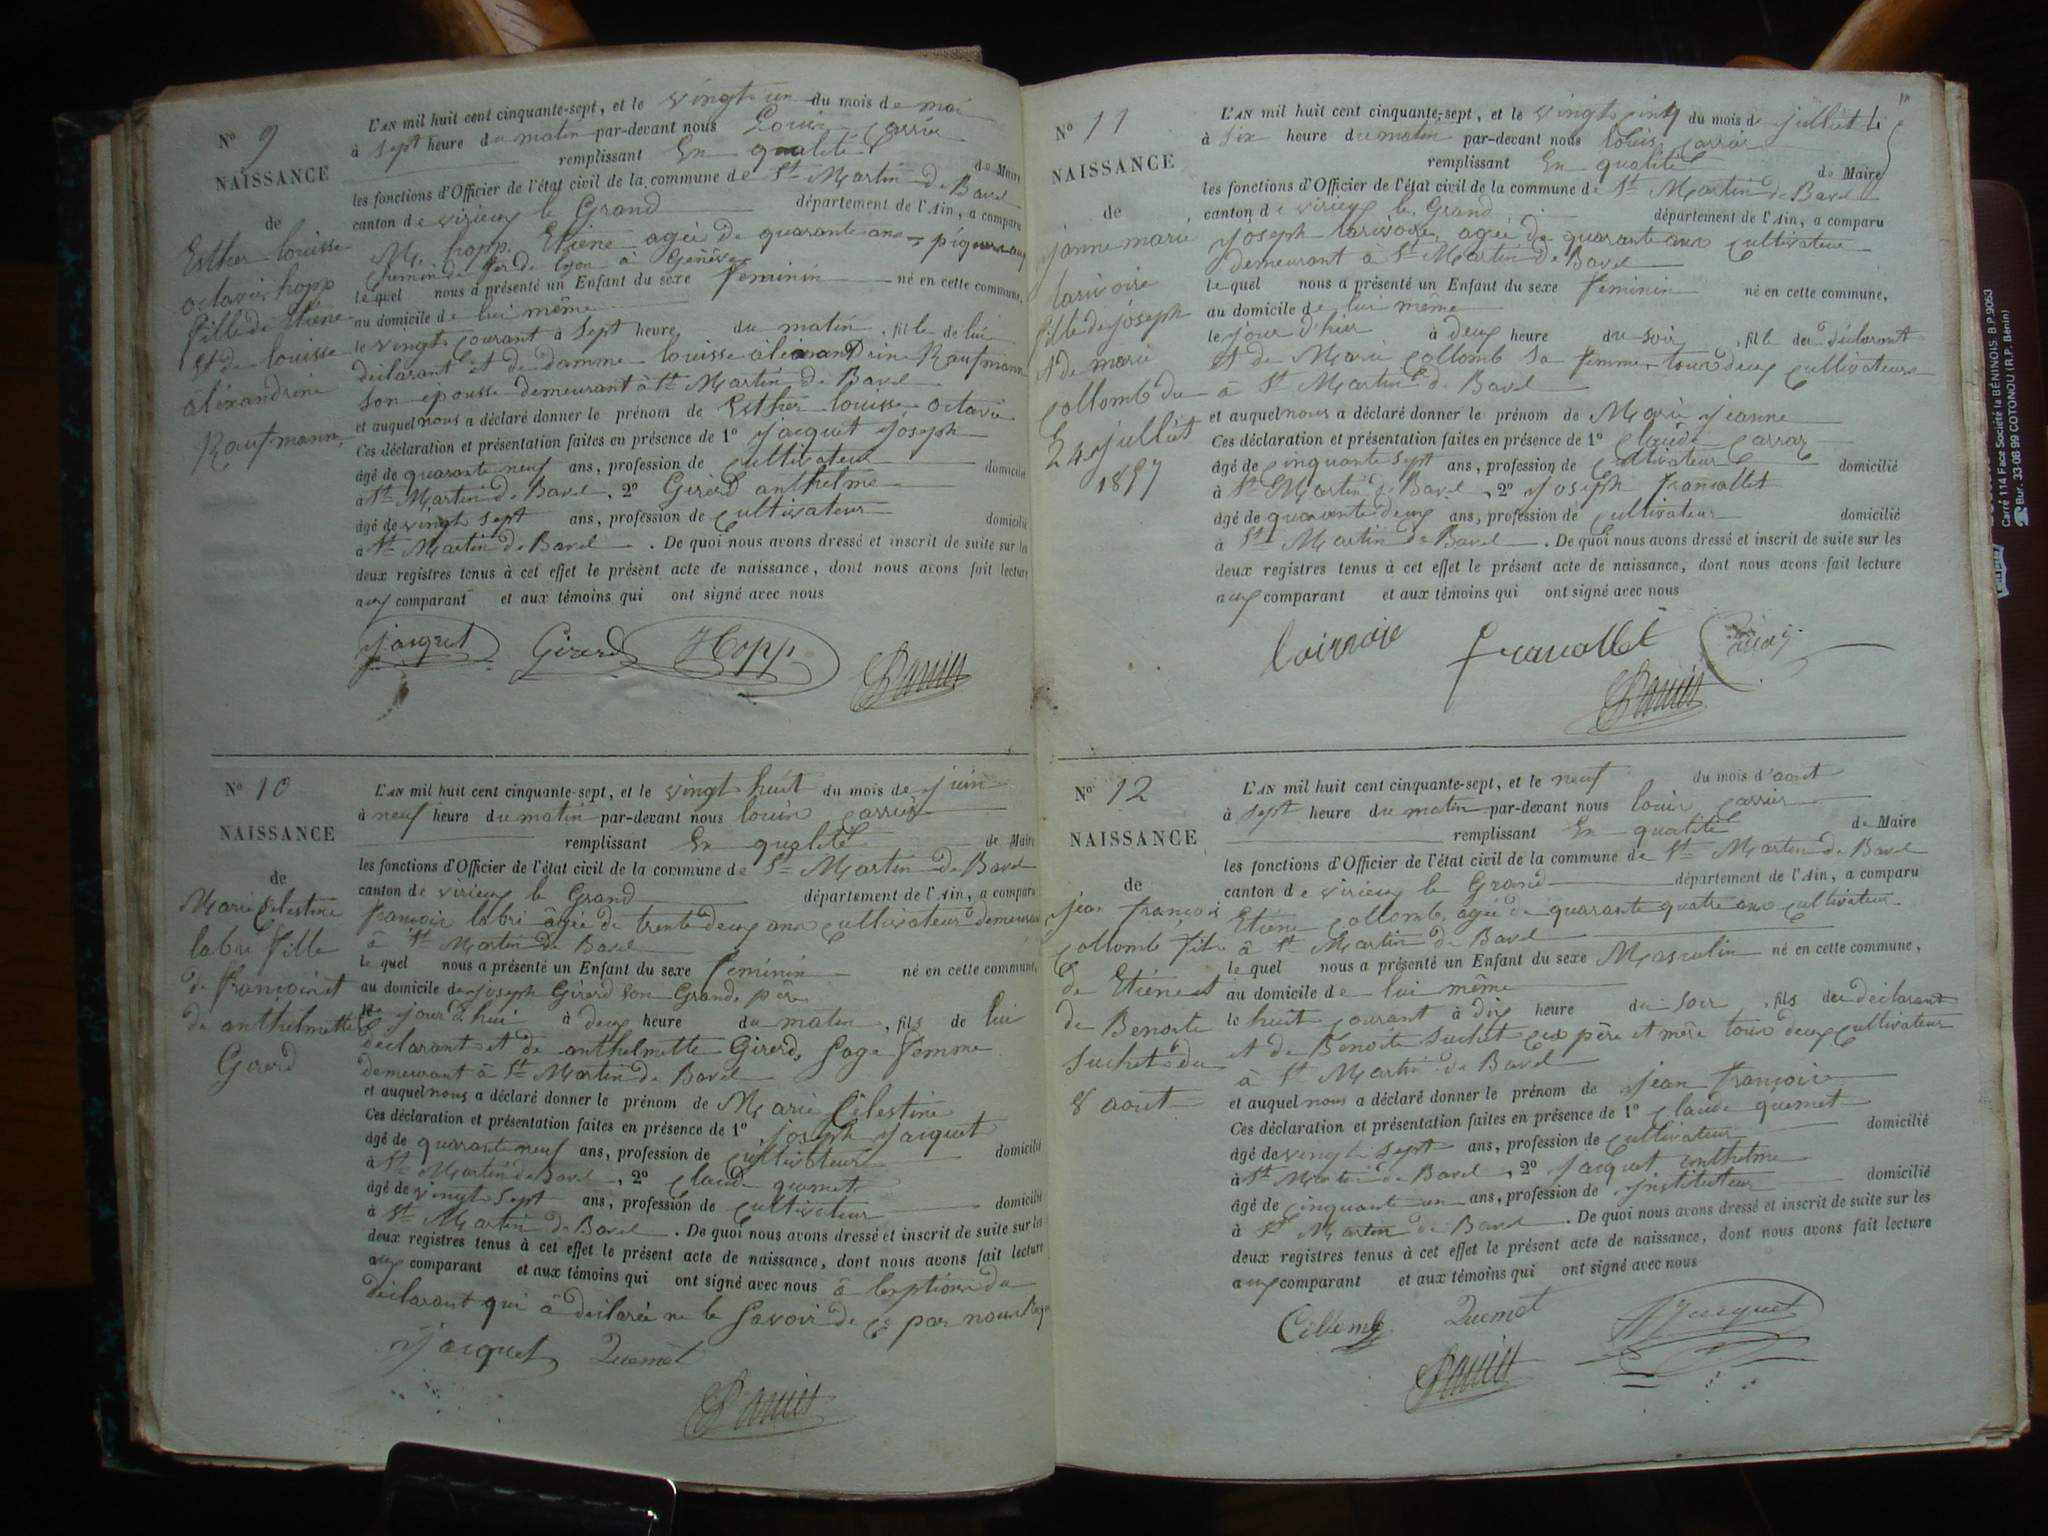 N° 9
NAISSANCE
de
Esther louisse
octavie hopp
fille de Etiéne
Et de louisse
aléxandrine
Kaufmann
L'AN mil huit cent cinquante-sept, et le vingt un du mois de mai
à sept heure du matin par-devant nous Louis carrier
remplissant En qualité de Maire
les fonctions d'Officier de l'état civil de la commune de St Martin de Bavel
canton de virieux le Grand département de l'Ain, a comparu
M. hopp Etiéne agée de quarante ans, piqueur aux
chemin de fer de lyon à Genève
lequel nous a présenté un Enfant du sexe feminin né en cette commune,
au domicile de lui même
le vingt courant à sept heure du matin, fille de lui
déclarant et de damme louisse aléxandrine Kaufmann
son épousse demeurant à St Martin de Bavel
et auquel nous a déclaré donner le prénom de Esther louisse octavie
Ces déclaration et présentation faites en présence de 1° Jacquet Joseph
âgé de quarante neuf ans, profession de cultivateur domicilié
à St Martin de Bavel, 2° Girerd anthelme
âgé de vingt sept ans, profession de cultivateur domicilié
à St Martin de Bavel. De quoi nous avons dressé et inscrit de suite sur les
deux registres tenus à cet effet le présent acte de naissance, dont nous avons fait lecture
aux comparant et aux témoins qui ont signé avec nous
Jacquet Girerd Hopp
N° 10
NAISSANCE
de
Marie Célestine
labri fille
de françois et
de anthelmette
Girerd
L'AN mil huit cent cinquante-sept, et le vingt huit du mois de juin
à neuf heure du matin par-devant nous louis carrier
remplissant En qualité de Maire
les fonctions d'Officier de l'état civil de la commune de St Martin de Bavel
canton de virieux le Grand département de l'Ain, a comparu
françois labri âgée de trente deux ans cultivateur demeurant
à St Martin de Bavel
lequel nous a présenté un Enfant du sexe feminin né en cette commune,
au domicile de joseph Girerd son Grande père
le jour d'hui à deux heure du matin, fils de lui
déclarant et de anthelmette Girerd, sage femme
demeurant à St Martin de Bavel
et auquel nous a déclaré donner le prénom de Marie Célestine
Ces déclaration et présentation faites en présence de 1° Joseph Jacquet
âgé de quarante neuf ans, profession de cultivateur domicilié
à St Martin de Bavel, 2° claude quemet
âgé de vingt sept ans, profession de cultivateur domicilié
à St Martin de Bavel. De quoi nous avons dressé et inscrit de suite sur les
deux registres tenus à cet effet le présent acte de naissance, dont nous avons fait lecture
aux comparant et aux témoins qui ont signé avec nous à lexption du
déclarant qui à declarée ne le savoir de ce par nous
Jacquet Quemet
N° 11
NAISSANCE
de
janne marie
larivoire
fille de joseph
et de marie
collomb du
24 julliet
1857
L'AN mil huit cent cinquante-sept, et le vingt cinq du mois de julliet
à six heure du matin par-devant nous louis carrier
remplissant En qualité de Maire
les fonctions d'Officier de l'état civil de la commune de St Martin de Bavel
canton de virieux le Grand département de l'Ain, a comparu
Joseph larivoire, agée de quarante ans cultivateur
demeurant à St Martin de Bavel
lequel nous a présenté un Enfant du sexe feminin né en cette commune,
au domicile de lui même
le jour d'hier à deux heure du soir, fille du déclarant
et de Marie collomb sa femme, tous deux cultivateurs
à St Martin de Bavel
et auquel nous a déclaré donner le prénom de Marie jeanne
Ces déclaration et présentation faites en présence de 1° claude carraz
âgé de cinquante sept ans, profession de cultivateur domicilié
à St Martin de Bavel, 2° Joseph francallet
âgé de quarante deux ans, profession de cultivateur domicilié
à St Martin de Bavel. De quoi nous avons dressé et inscrit de suite sur les
deux registres tenus à cet effet le présent acte de naissance, dont nous avons fait lecture
aux comparant et aux témoins qui ont signé avec nous
francallet
N° 12
NAISSANCE
de
jean françois
collomb fils
de Etiéne et
de Benoite
suchet du
8 aout
L'AN mil huit cent cinquante-sept, et le neuf du mois d'aout
à sept heure du matin par-devant nous louis carrier
remplissant En qualité de Maire
les fonctions d'Officier de l'état civil de la commune de St Martin de Bavel
canton de virieux le Grand département de l'Ain, a comparu
Etiéne collomb, agée de quarante quatre ans cultivateur
à St Martin de Bavel
lequel nous a présenté un Enfant du sexe Masculin né en cette commune,
au domicile de lui même
le huit courant à dix heure du soir, fils du déclarant
et de Benoite suchet ces père et mère tous deux cultivateur
à St Martin de Bavel
et auquel nous a déclaré donner le prénom de jean françois
Ces déclaration et présentation faites en présence de 1° claude quemet
âgé de vingt sept ans, profession de cultivateur domicilié
à St Martin de Bavel, 2° jacquet anthelme
âgé de cinquante un ans, profession de Instituteur domicilié
à St Martin de Bavel. De quoi nous avons dressé et inscrit de suite sur les
deux registres tenus à cet effet le présent acte de naissance, dont nous avons fait lecture
aux comparant et aux témoins qui ont signé avec nous
Quemet Jacquet
Carré 114 Face Société la BÉNINOIS. B.P. 9063
Bur. 33-08-99 COTONOU (R.P. Bénin)